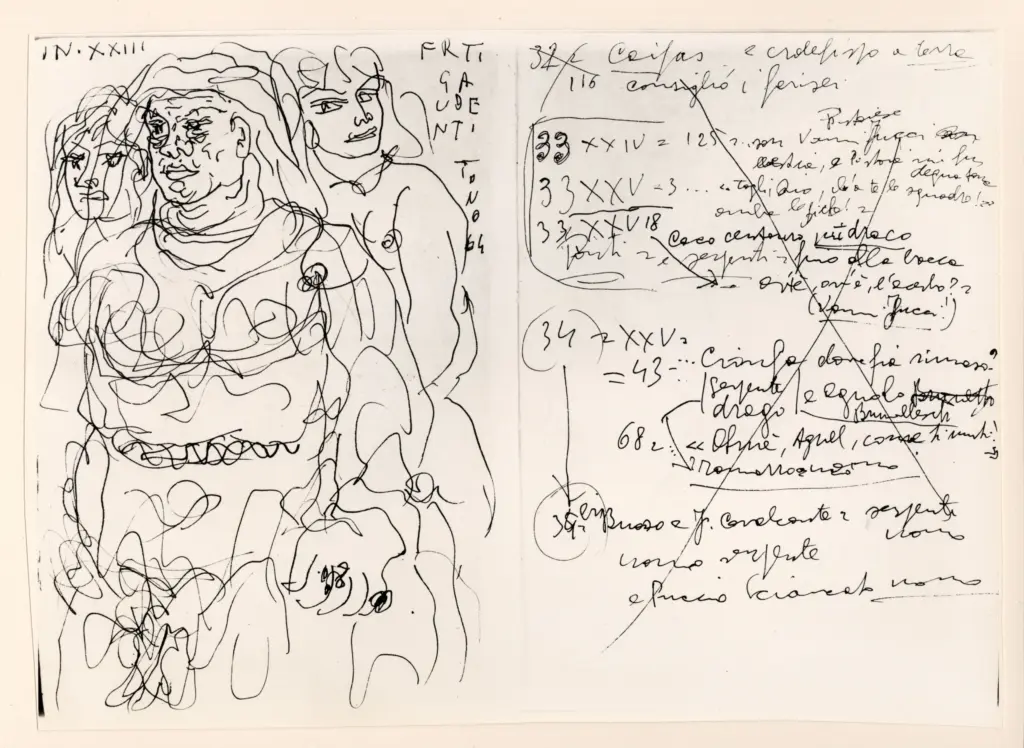 IN · XXIII
FRTI
GA
UDE
NTI
TONO
64
32 = Caifas e crocefisso a terra
116 consigliò i farisei
33 XXIV = 125 = son Vanni Fucci
Pistoiese
bestia, e Pistoia mi fu
degna tana
33 XXV = 3 ... « Togli Dio, ch'a te le squadro! »
ambe le fiche! =
33 XXV 18
Caco centauro più draco
serpenti = fino alla bocca
ov'è, ov'è, l'acerbo? =
(Vanni Fucci!)
34 = XXV =
= 43 = ... Cianfa dove fia rimaso?
serpente
drago e Agnolo
Brunelleschi
68 = : « Ohmè, Agnel, come ti muti!
35 Buoso e F. Cavalcante = serpente
uomo
uomo serpente
e Puccio Sciancato uomo